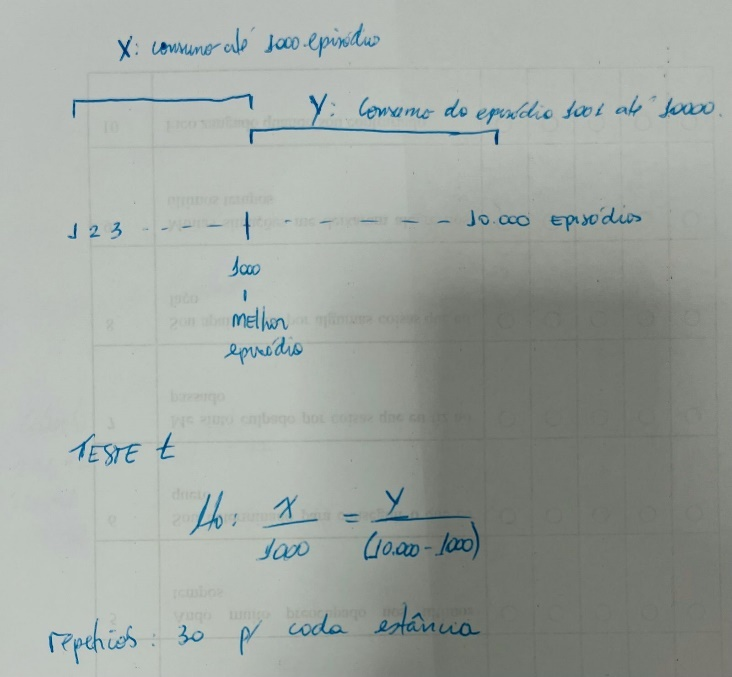 X: consumo até 1000 episódio
Y: Consumo do episódio 1001 até 10000.
1 2 3 - - - - - | - - - - - - - - 10.000 EPISÓDIOS
1000
Melhor
episódio
TESTE t
H₀: X/1000 = Y/(10.000 - 1000)
repetições: 30 p/ cada estância